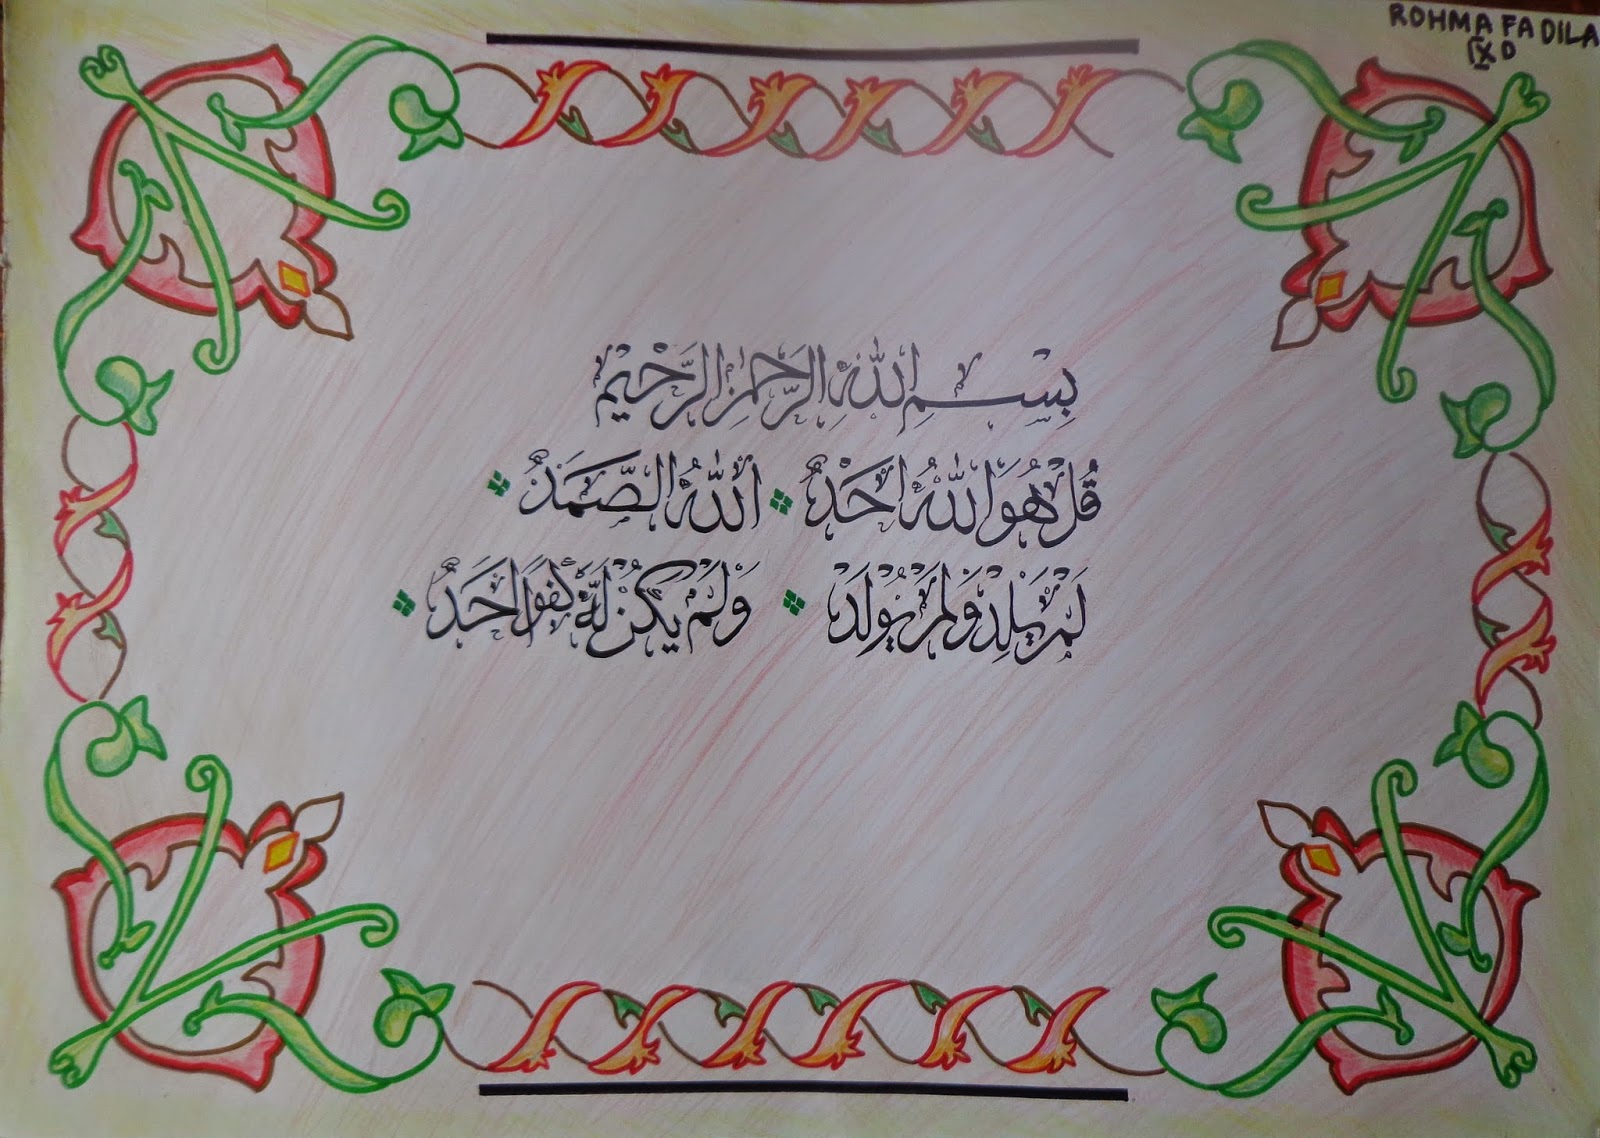 ROHMA FADILA
IX D
بِسْمِ اللّٰهِ الرَّحْمٰنِ الرَّحِيْمِ
قُلْ هُوَ اللّٰهُ اَحَدٌ اَللّٰهُ الصَّمَدُ
لَمْ يَلِدْ وَلَمْ يُوْلَدْ وَلَمْ يَكُنْ لَّهٗ كُفُوًا اَحَدٌ